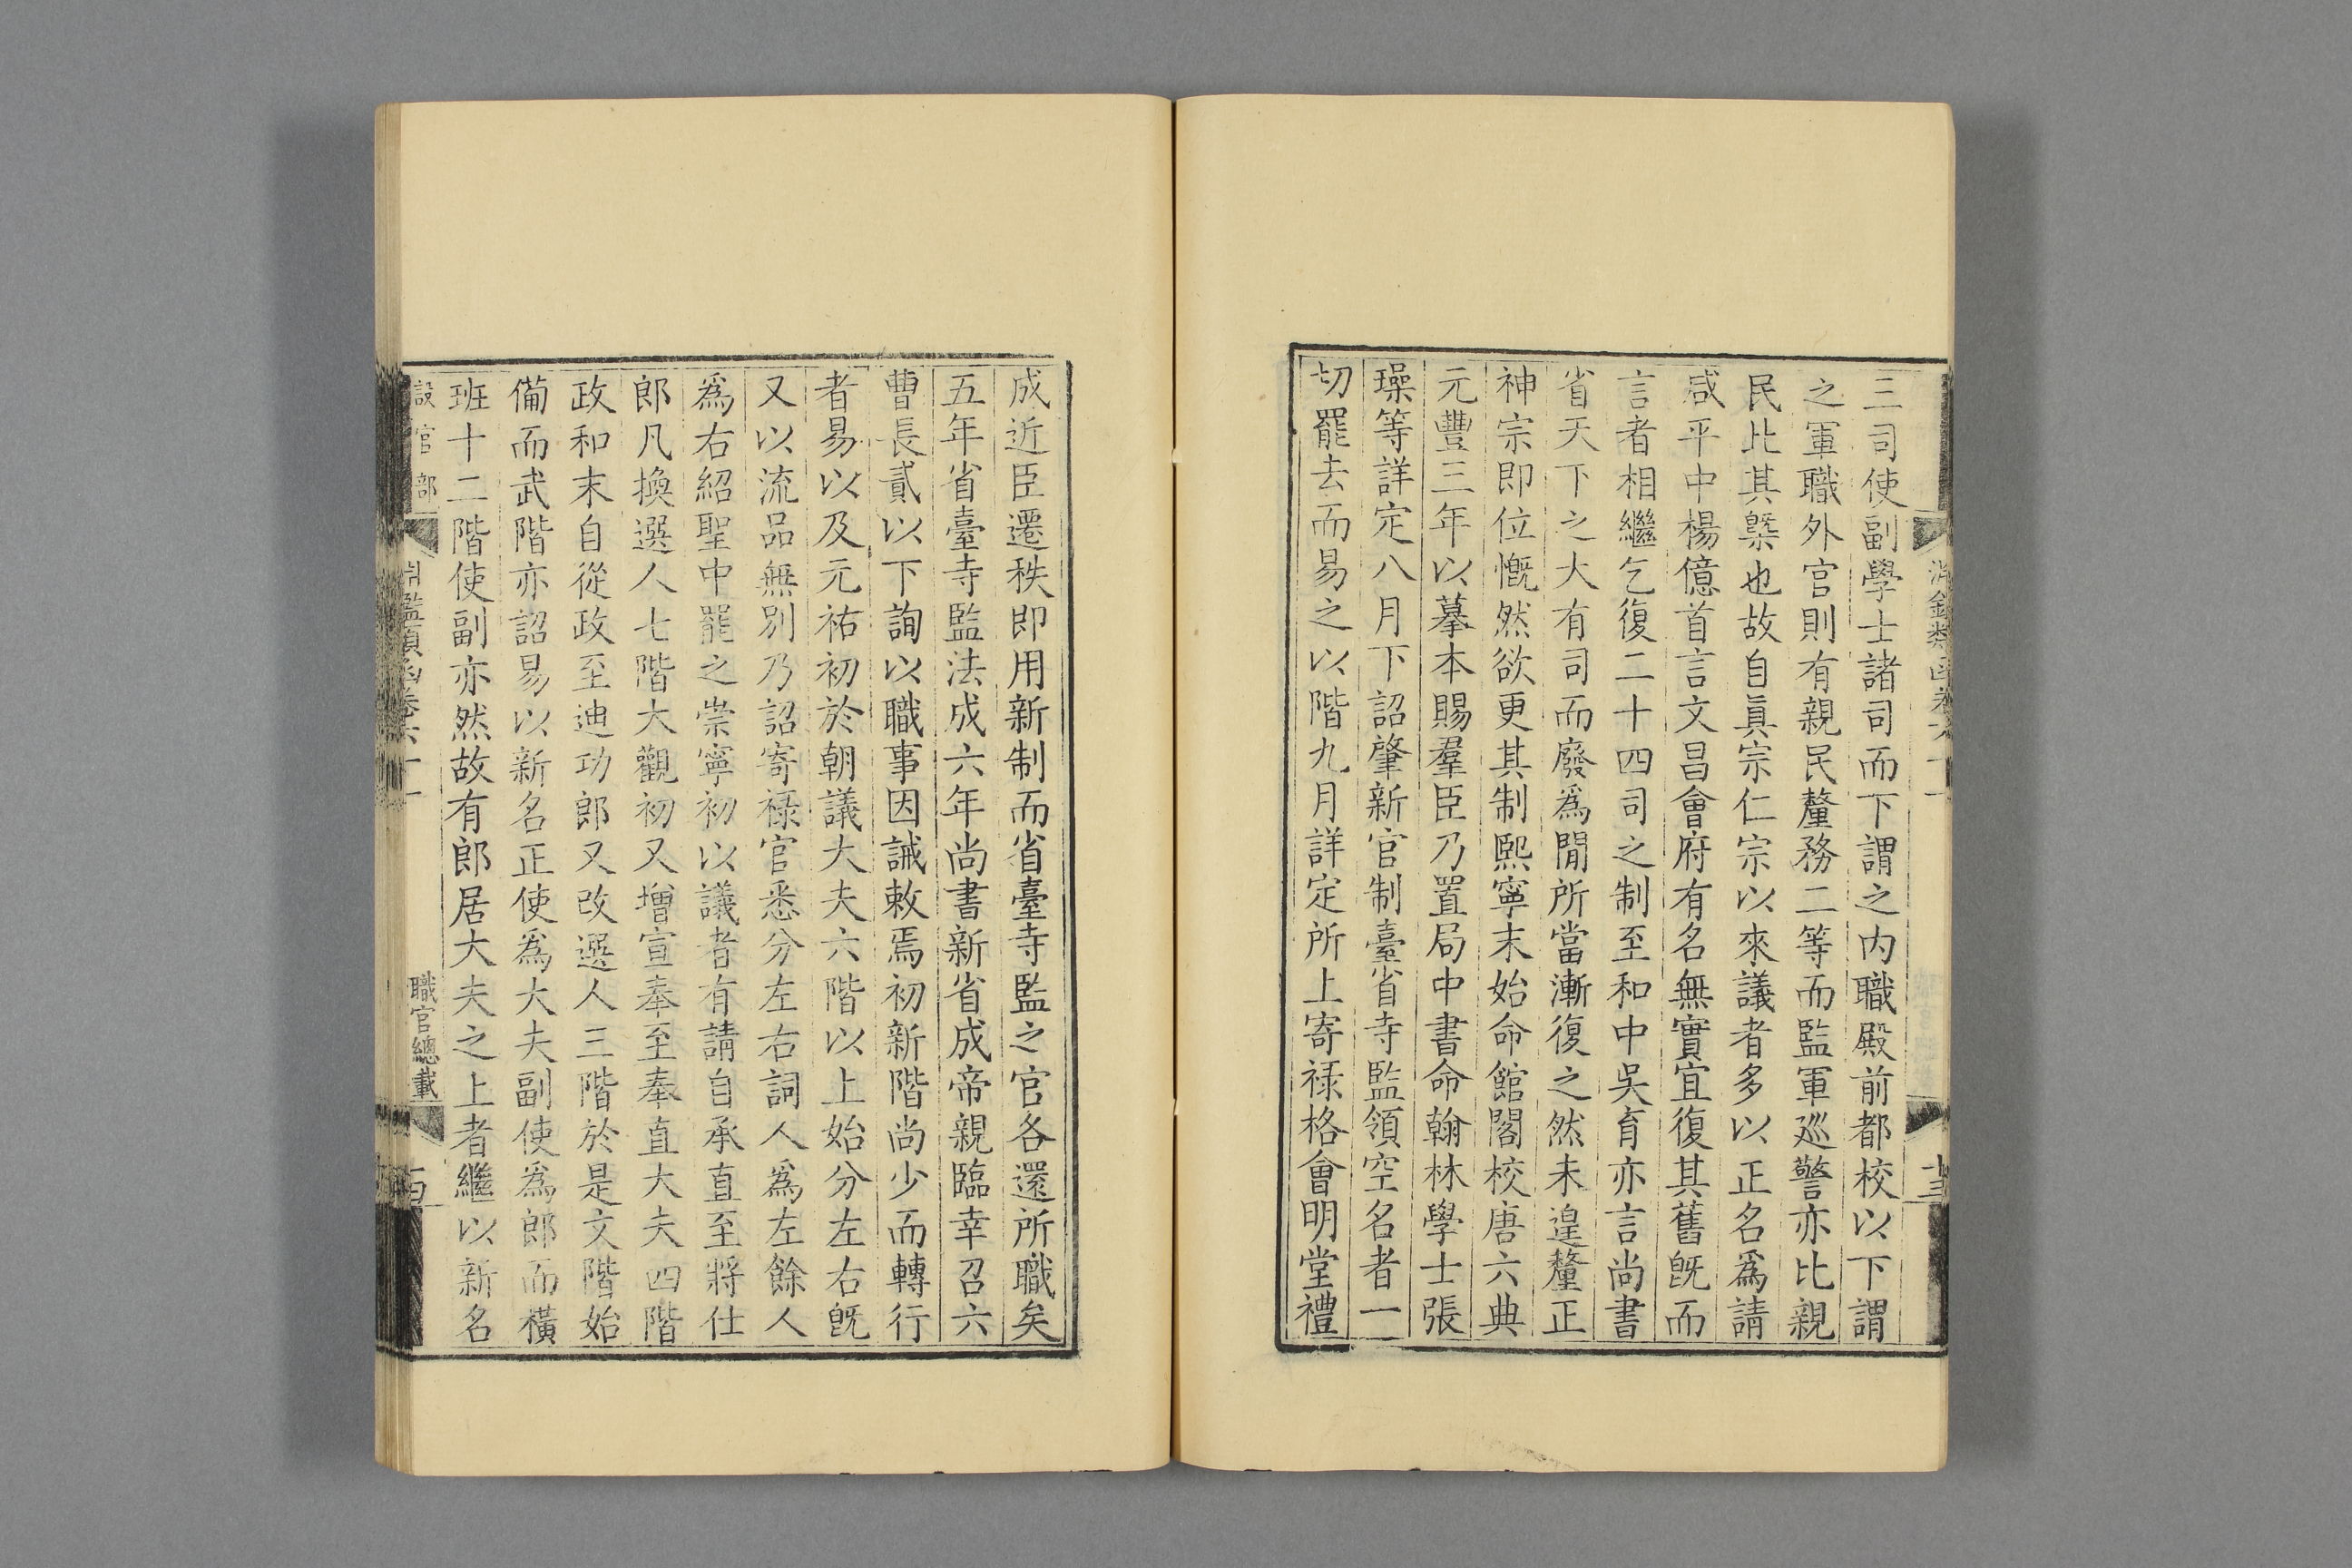 三司使副學士諸司而下謂之内職殿前都校以下謂
之軍職外官則有親民釐務二等而監軍巡警亦比親
民比其槩也故自眞宗仁宗以來議者多以正名爲請
咸平中楊億首言文昌會府有名無實宜復其舊旣而
言者相繼乞復二十四司之制至和中吳育亦言尚書
省天下之大有司而廢爲閒所當漸復之然未遑釐正
神宗即位慨然欲更其制熙寧末始命館閣校唐六典
元豐三年以摹本賜羣臣乃置局中書命翰林學士張
璪等詳定八月下詔肇新官制臺省寺監領空名者一
切罷去而易之以階九月詳定所上寄祿格會明堂禮
成近臣遷秩即用新制而省臺寺監之官各還所職矣
五年省臺寺監法成六年尚書新省成帝親臨幸召六
曹長貳以下詢以職事因誡敕焉初新階尚少而轉行
者易以及元祐初於朝議大夫六階以上始分左右旣
又以流品無別乃詔寄祿官悉分左右詞人爲左餘人
爲右紹聖中罷之崇寧初以議者有請自承直至將仕
郎凡換選人七階大觀初又增宣奉至奉直大夫四階
政和末自從政至迪功郎又改選人三階於是文階始
備而武階亦詔易以新名正使爲大夫副使爲郎而橫
班十二階使副亦然故有郎居大夫之上者繼以新名
設官部
職官總載